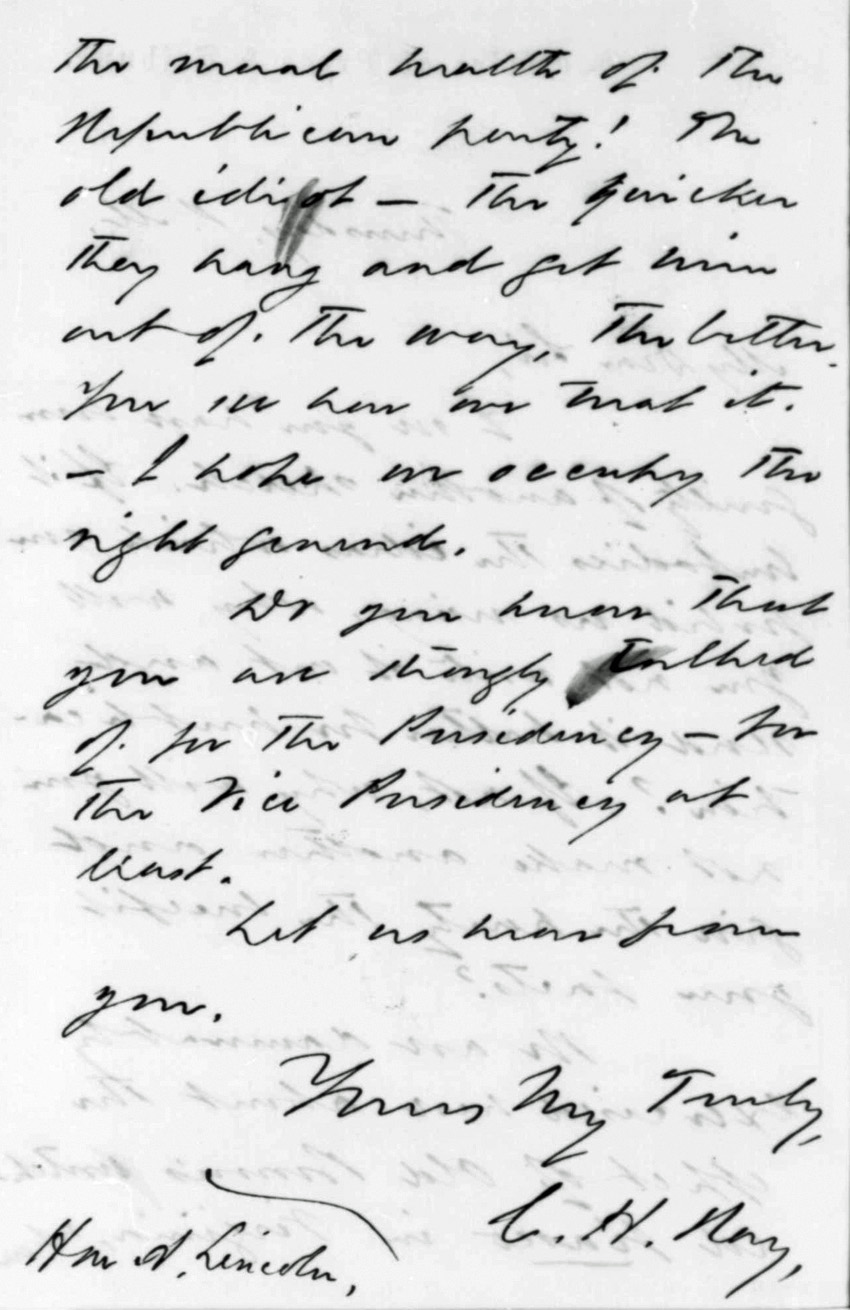 the moral health of the
Republican party! The
old idiot — the quicker
they hang and get him
out of the way, the better.
You see how we treat it.
— I hope we occupy the
right ground.
Do you know that
you are strongly talked
of for the Presidency — for
the Vice Presidency at
least.
Let us hear from
you.
Yours Very Truly,
C. H. Ray,
Hon A. Lincoln,